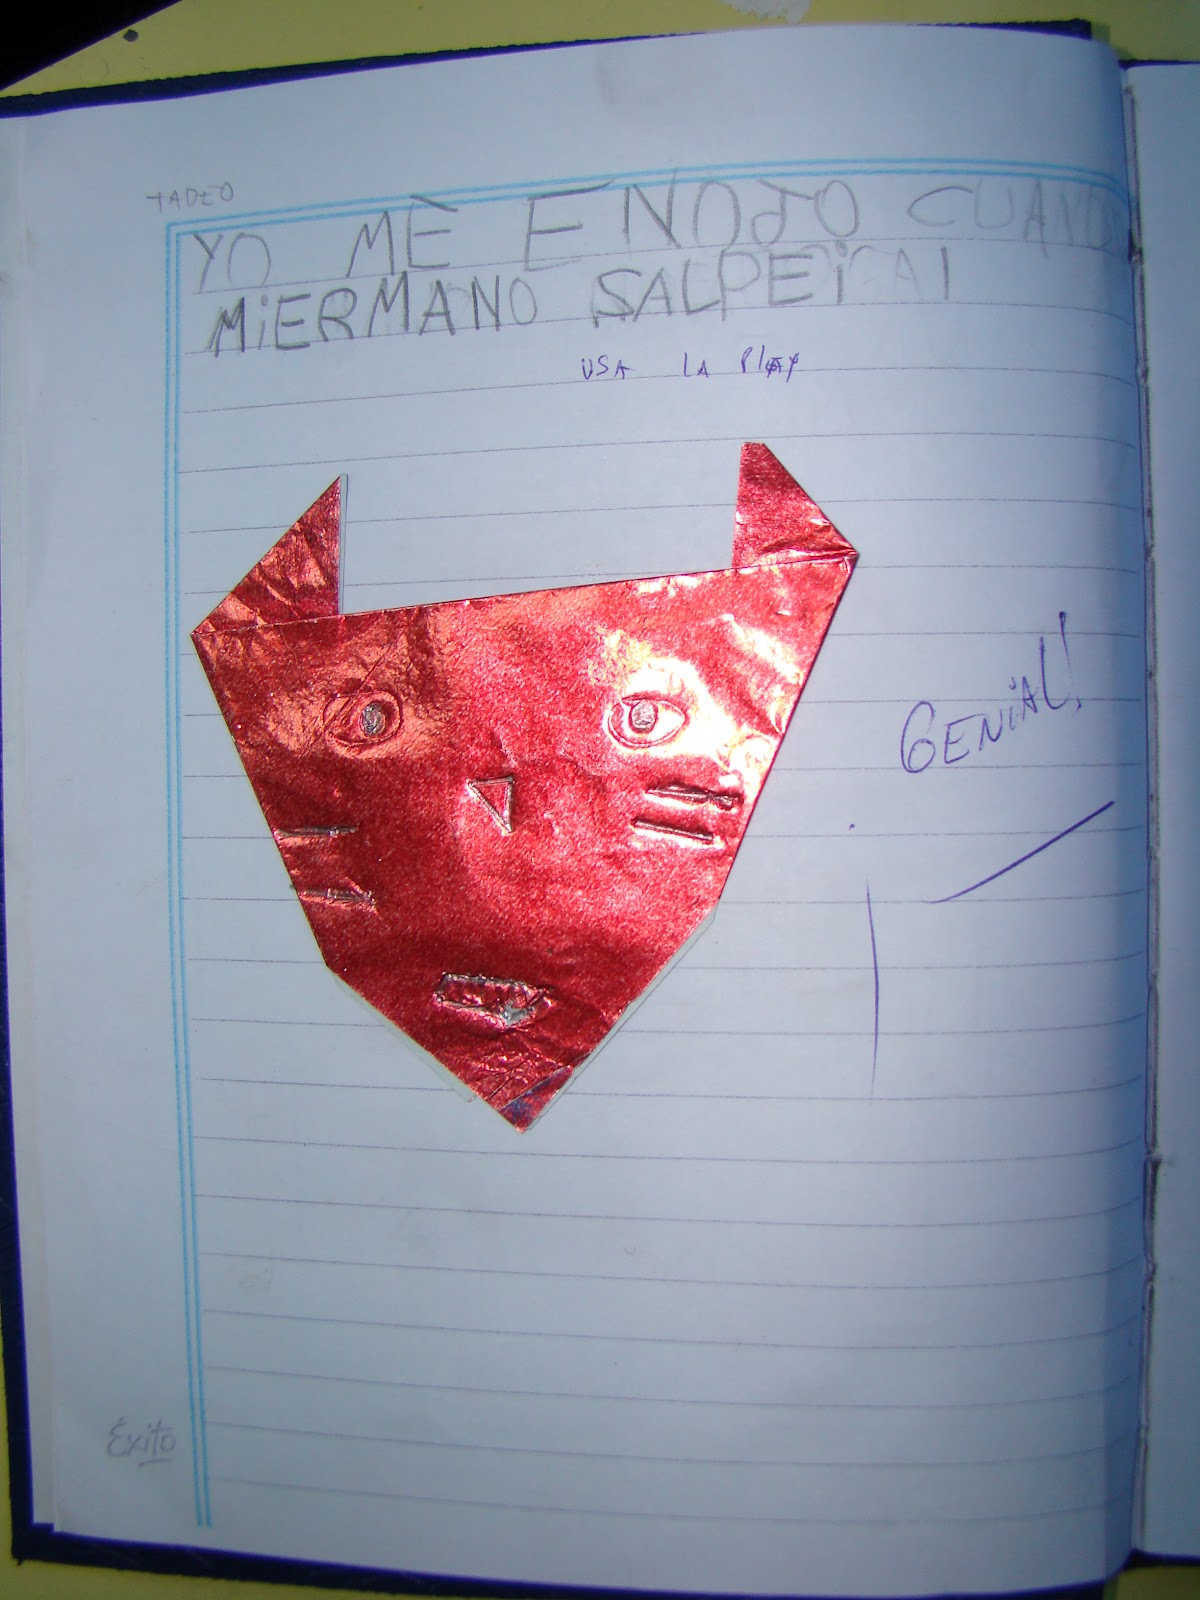 TADEO
YO ME ENOJO CUANDO
MIERMANO SALPEI
USA LA PLAY
GENIAL!
Éxito